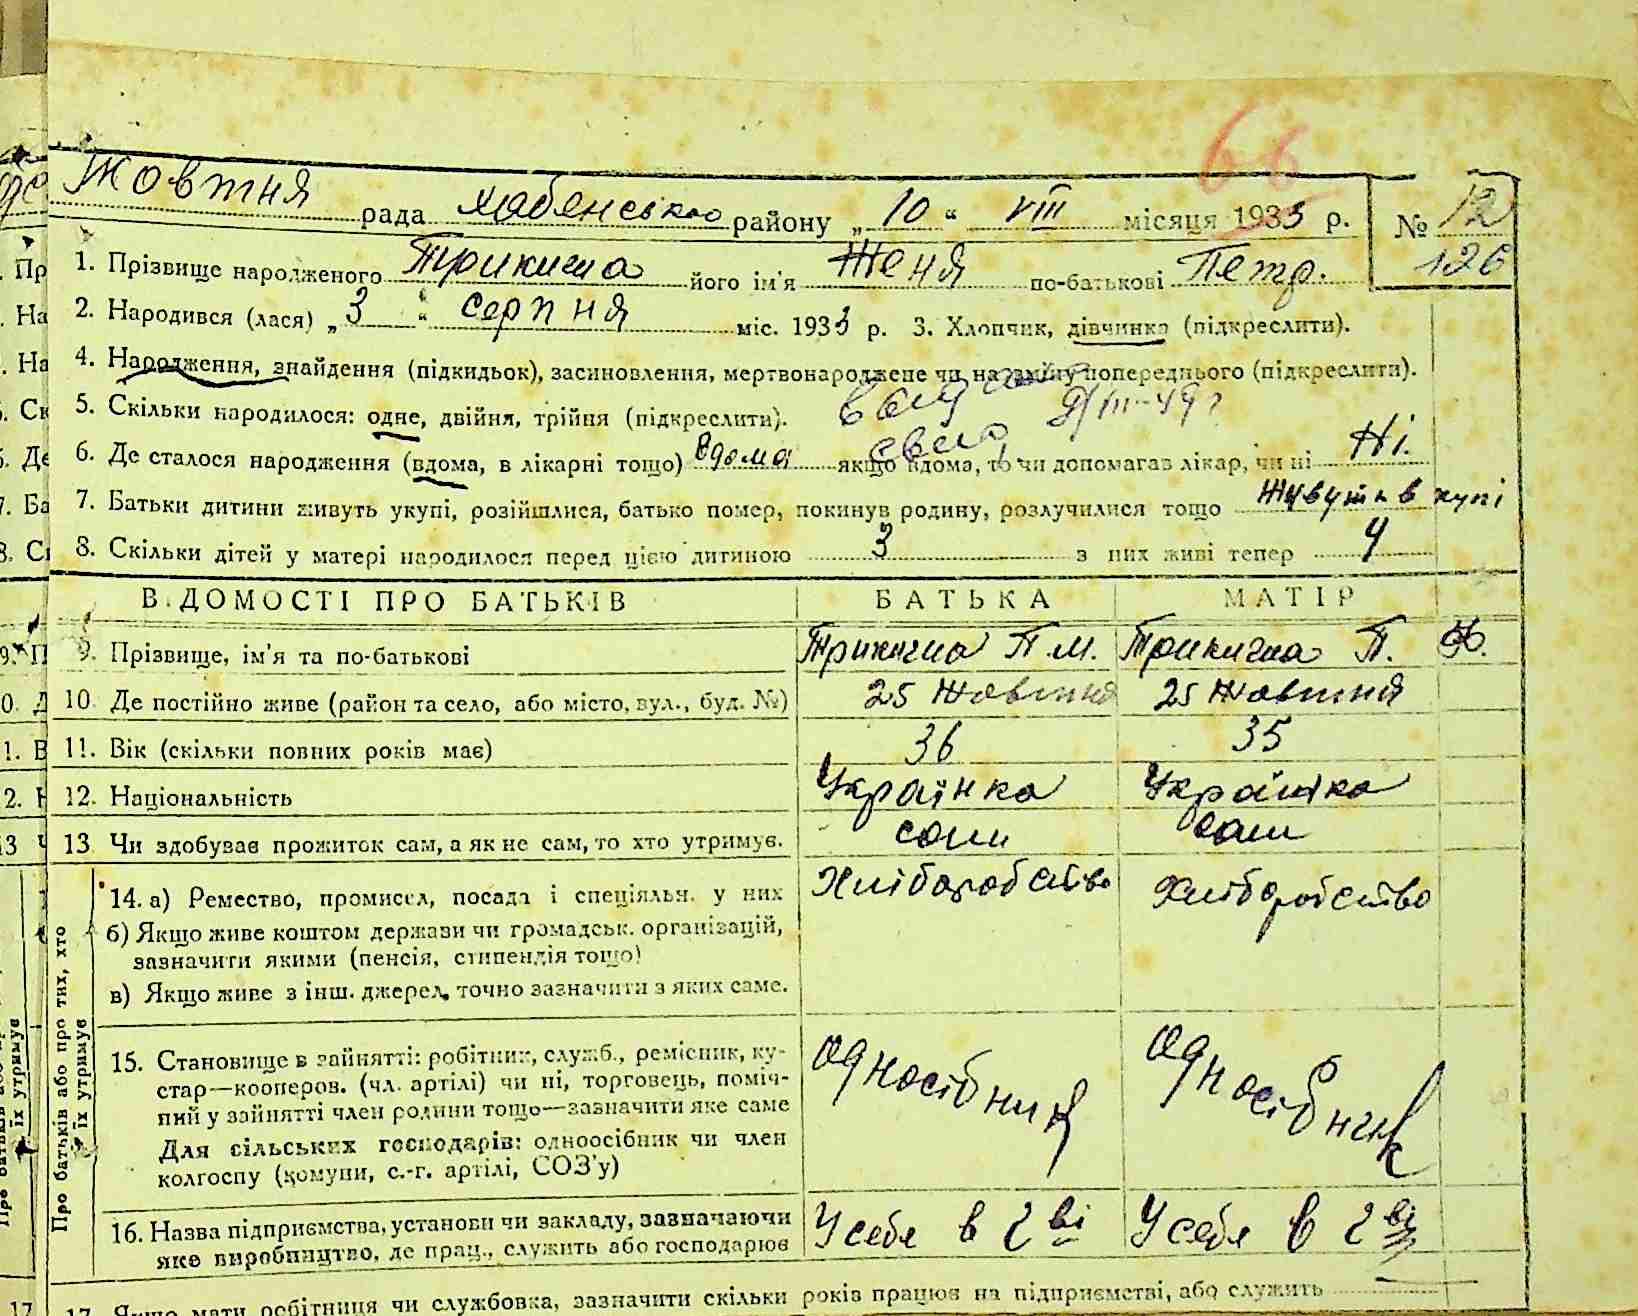 66
Жовтня рада Хабенського району „10“ VIII місяця 1933 р. № 12
126
1. Прізвище народженого його ім'я Женя по-батькові Петр.
2. Народився (лася) „3“ серпня міс. 1933 р. 3. Хлопчик, дівчинка (підкреслити).
4. Народження, знайдення (підкидьок), засиновлення, мертвонароджене чи на зміну попереднього (підкреслити).
5. Скільки народилося: одне, двійня, трійня (підкреслити).
6. Де сталося народження (вдома, в лікарні тощо) вдома якщо вдома, то чи допомагав лікар, чи ні Ні.
7. Батьки дитини живуть укупі, розійшлися, батько помер, покинув родину, розлучилися тощо Живуть в купі
8. Скільки дітей у матері народилося перед цією дитиною 3 з них живі тепер 4
ВІДОМОСТІ ПРО БАТЬКІВ БАТЬКА МАТІР
9. Прізвище, ім'я та по-батькові П. М. П.
10. Де постійно живе (район та село, або місто, вул., буд. №) 25 Жовтня 25 Жовтня
11. Вік (скільки повних років має) 36 35
12. Національність Українка Українка
13 Чи здобуває прожиток сам, а як не сам, то хто утримує. сами сами
Про батьків або про тих, хто їх утримує
14. а) Ремество, промисел, посада і спеціяльн. у них Хліборобство Хліборобство
б) Якщо живе коштом держави чи громадськ. організацій,
зазначити якими (пенсія, стипендія тощо)
в) Якщо живе з інш. джерел, точно зазначити з яких саме.
15. Становище в зайнятті: робітник, служб., ремісник, ку-
стар—кооперов. (чл. артілі) чи ні, торговець, поміч-
ний у зайнятті член родини тощо—зазначити яке саме
Для сільських господарів: одноосібник чи член
колгоспу (комуни, с.-г. артілі, СОЗ'у)
Односібник Односібник
16. Назва підприємства, установи чи закладу, зазначаючи
яке виробництво, де прац., служить або господарює
У себе в г ві У себе в г ві
17. Якщо мати робітниця чи службовка, зазначити скільки років працює на підприємстві, або служить